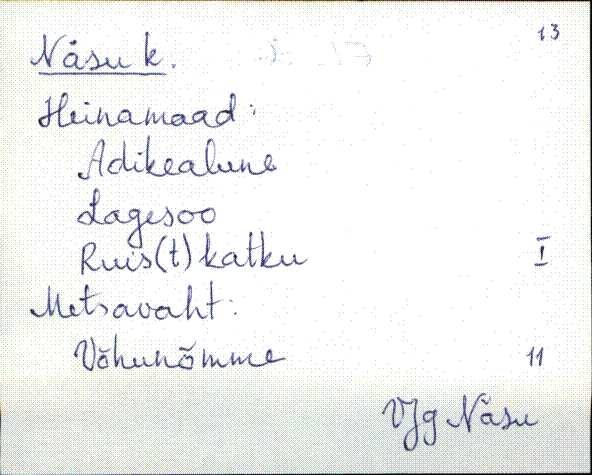 13
Näsu k.
Heinamaad:
Adikealune
Lagesoo
Ruis(t)katku I
Metsavaht:
Võhunõmme 11
VJg Näsu